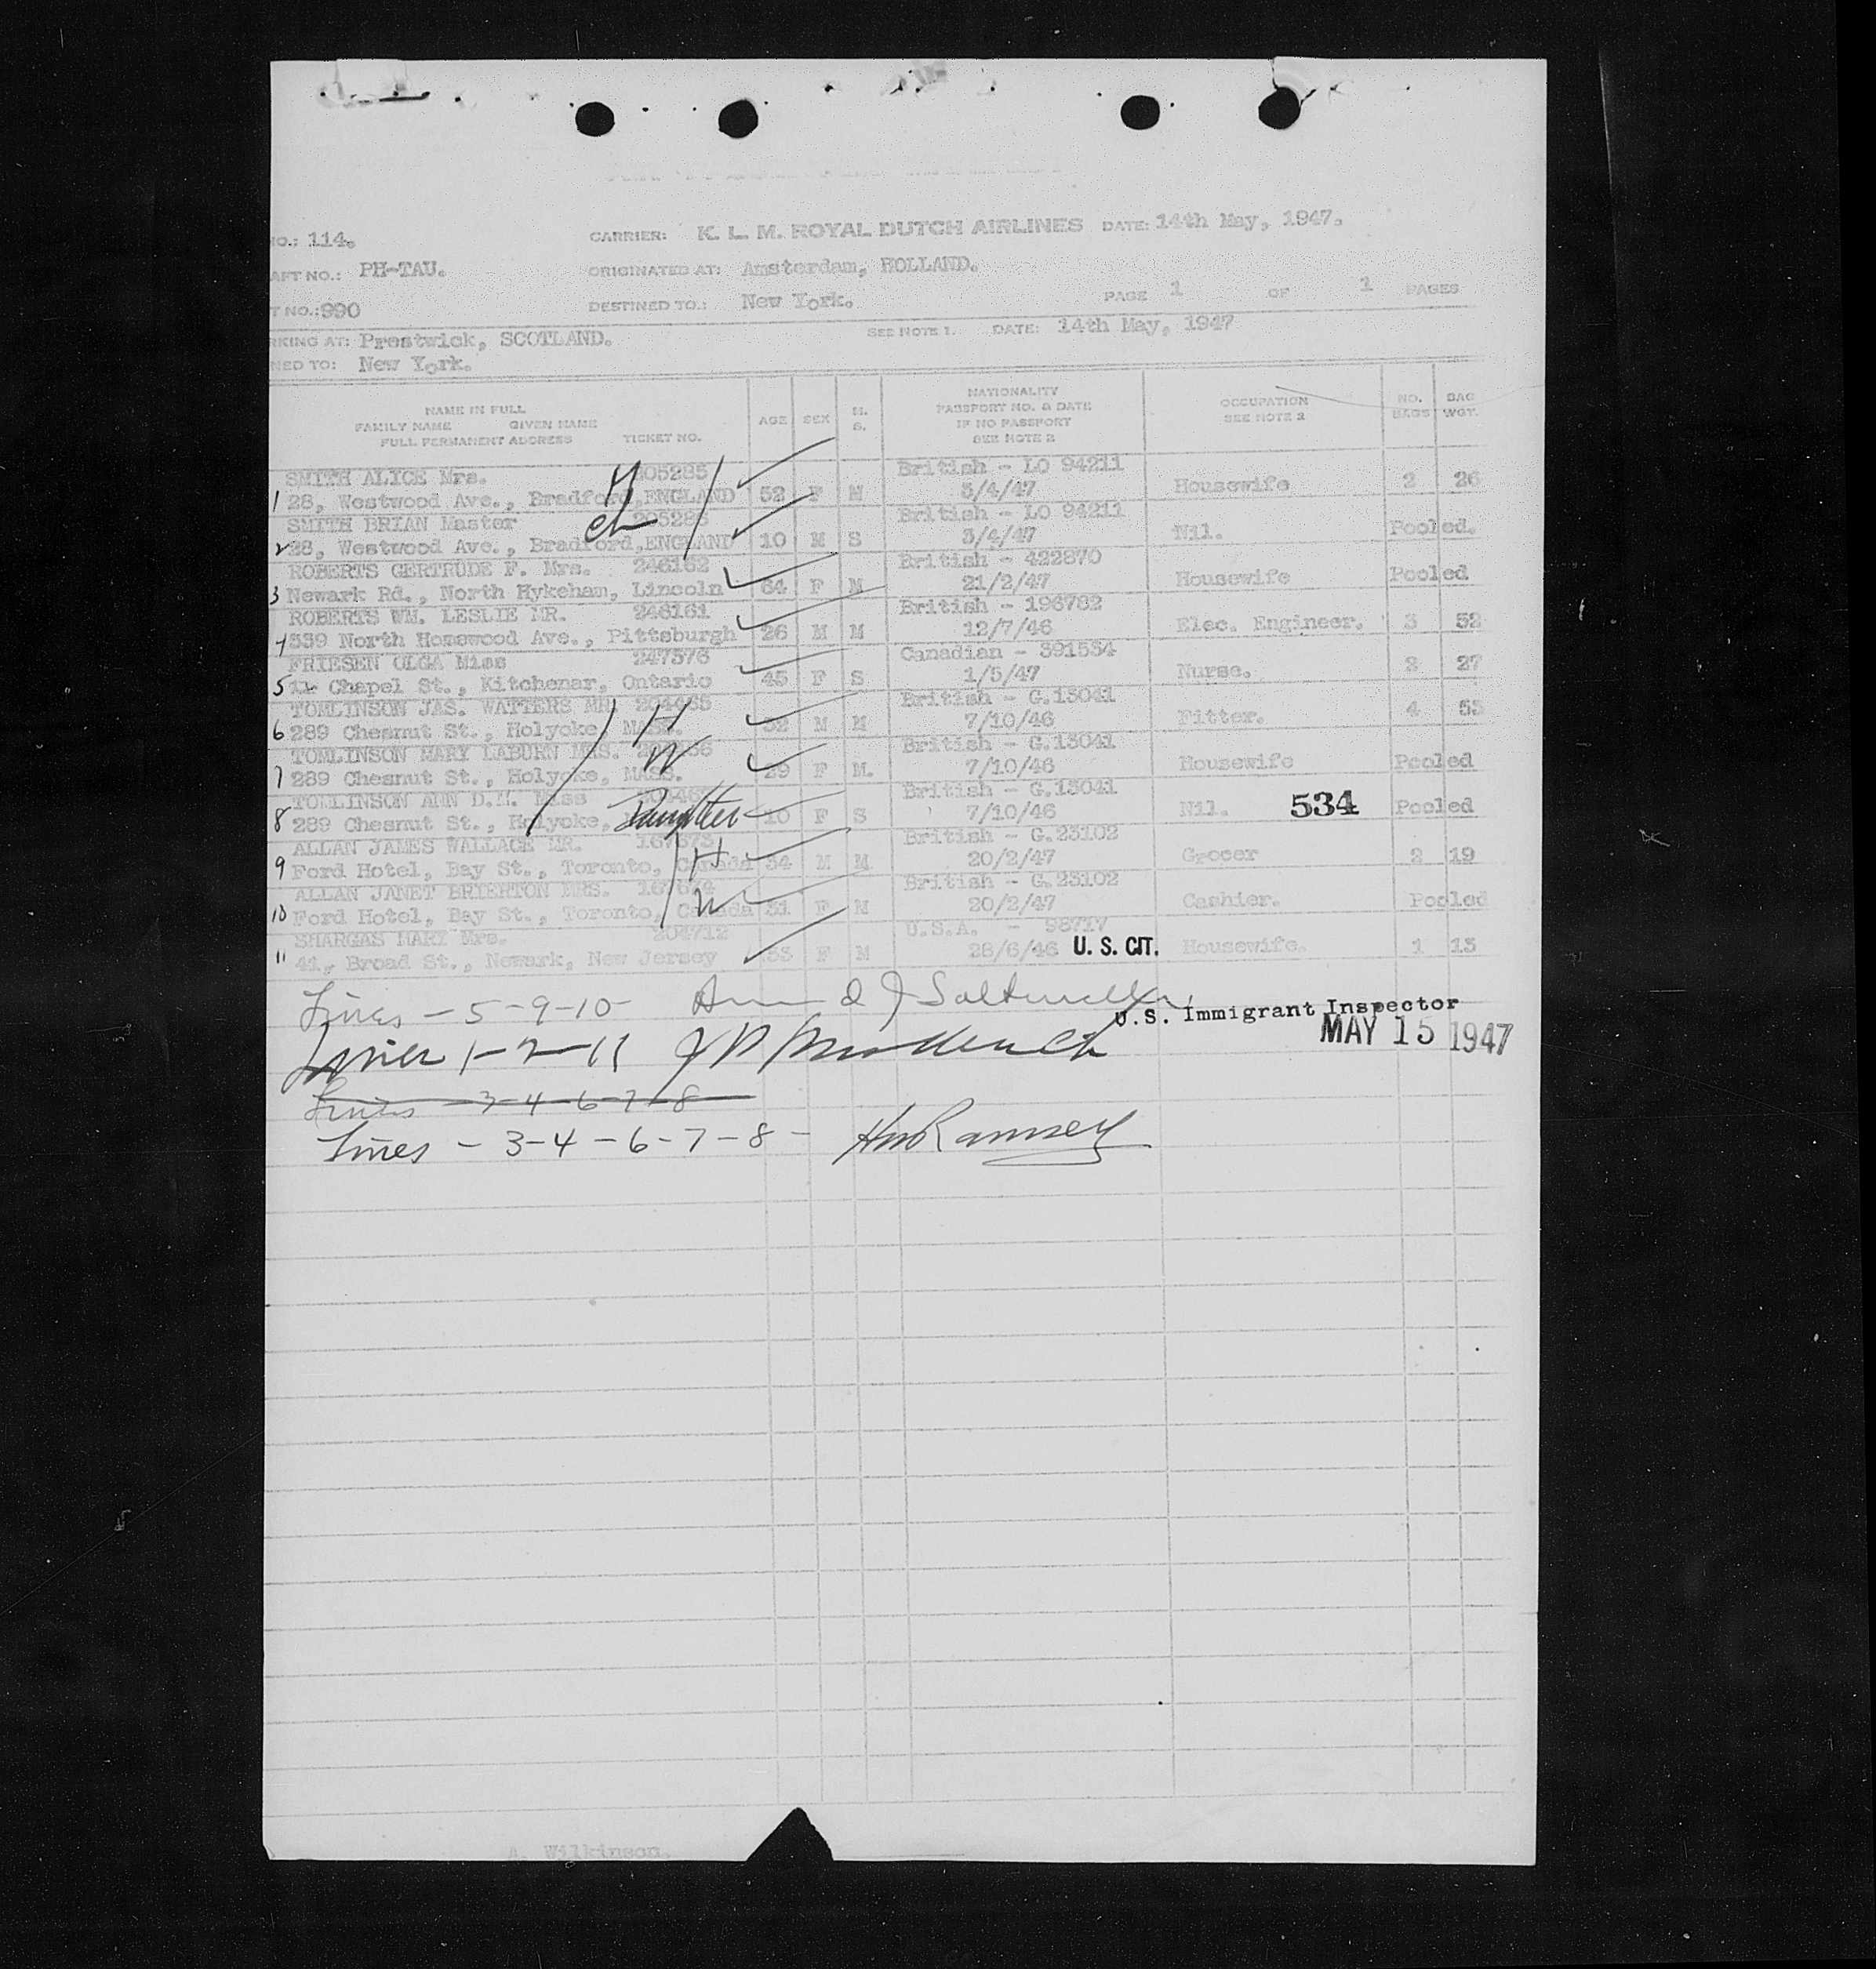 NO.: 114. CARRIER: K. L. M. ROYAL DUTCH AIRLINES DATE: 14th May, 1947.
AFT NO.: PH-TAU. ORIGINATED AT: Amsterdam, HOLLAND.
T NO.: 990 DESTINED TO.: New York. PAGE 1 OF 1 PAGES
RKING AT: Prestwick, SCOTLAND. SEE NOTE 1. DATE: 14th May, 1947
NED TO: New York.
NAME IN FULL
FAMILY NAME GIVEN NAME
FULL PERMANENT ADDRESS TICKET NO.
AGE SEX M. S.
NATIONALITY
PASSPORT NO. & DATE
IF NO PASSPORT
SEE NOTE 2
OCCUPATION
SEE NOTE 2
NO. BAGS
BAG WGT.
SMITH ALICE Mrs. 205285 British - LO 94211
1 28, Westwood Ave., Bradford, ENGLAND 52 F M 3/4/47 Housewife 2 26
SMITH BRIAN Master British - LO 94211
ch
2 28, Westwood Ave., Bradford, ENGLAND 10 M S 3/4/47 Nil. Pooled.
ROBERTS GERTRUDE F. Mrs. 246162 British - 422870
3 Newark Rd., North Hykeham, Lincoln 64 F M 21/2/47 Housewife Pooled
ROBERTS WM. LESLIE MR. 246161 British - 196782
4 539 North Homewood Ave., Pittsburgh 26 M M 12/7/46 Elec. Engineer. 3 52
FRIESEN OLGA Miss 247376 Canadian - 391534
5 11 Chapel St., Kitchenar, Ontario 45 F S 1/5/47 Nurse. 2 27
TOMLINSON JAS. WATTERS MR. 204465 British - G.13041
H
6 289 Chesnut St., Holyoke, MASS. 32 M M 7/10/46 Fitter. 4 53
TOMLINSON MARY LABURN MRS. British - G.13041
W
7 289 Chesnut St., Holyoke, MASS. 29 F M. 7/10/46 Housewife Pooled
TOMLINSON ANN D.M. Miss British - G.13041
8 289 Chesnut St., Holyoke, Daughter 10 F S 7/10/46 Nil. 534 Pooled
ALLAN JAMES WALLACE MR. British - G.23102
H
9 Ford Hotel, Bay St., Toronto, Canada 34 M M 20/2/47 Grocer 2 19
ALLAN JANET BRIERTON MRS. British - G.23102
W
10 Ford Hotel, Bay St., Toronto, Canada 31 F M 20/2/47 Cashier. Pooled
SHARGAS MARY Mrs. 204712 U.S.A. - 98717
11 41, Broad St., Newark, New Jersey 53 F M 28/6/46 U. S. CIT. Housewife. 1 13
Lines - 5-9-10
U.S. Immigrant Inspector
Lines 1-2-11 MAY 15 1947
Lines - 3-4-6-7-8
Lines - 3-4-6-7-8- Ramsey
A. Wilkinson.